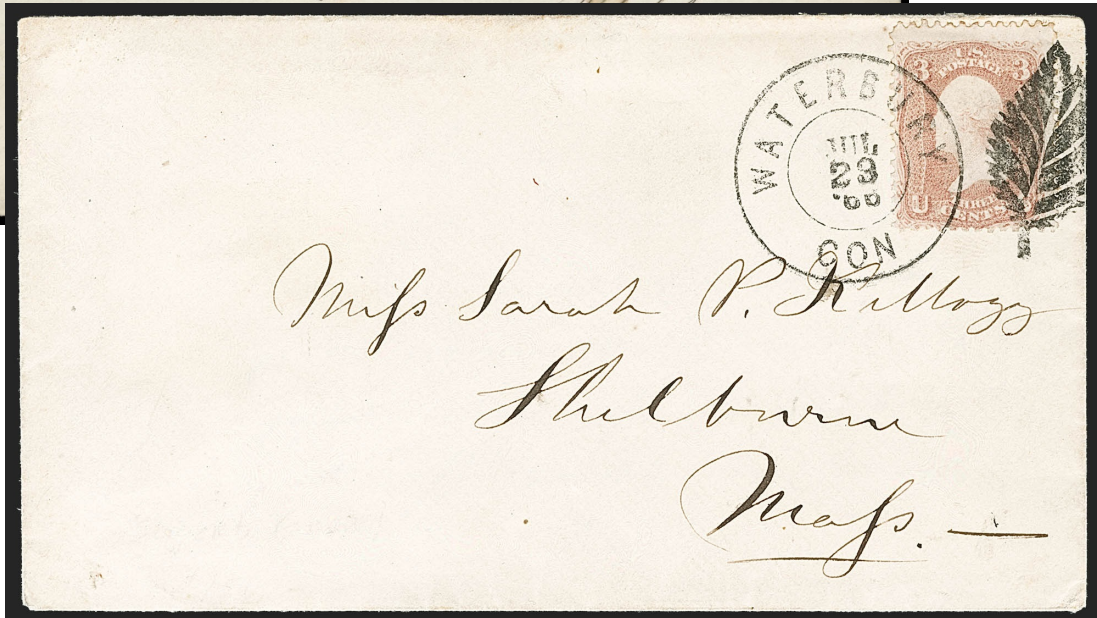 WATERBURY
JUL
23
'66
CON
3 U.S. POSTAGE 3
U THREE CENTS
Miſs Sarah P. Kellogg
Shelburne
Maſs. —